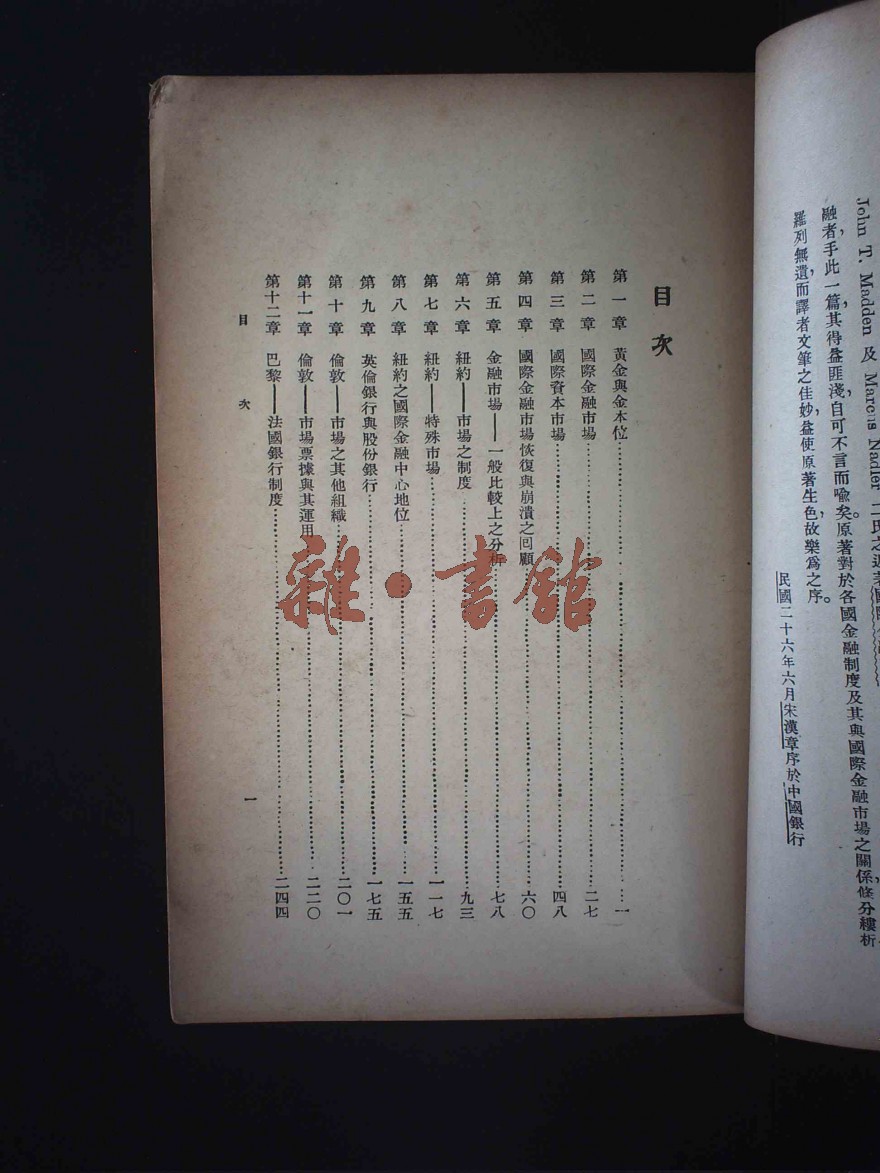 John T. Madden 及 Marcus Nadler 二氏之近著國際
融者，手此一篇，其得益匪淺，自可不言而喻矣。原著對於各國金融制度及其與國際金融市場之關係，條分縷析，
羅列無遺，而譯者文筆之佳妙，益使原著生色，故樂為之序。
民國二十六年六月宋漢章序於中國銀行
目次
第一章 黃金與金本位……一
第二章 國際金融市場……二七
第三章 國際資本市場……四八
第四章 國際金融市場恢復與崩潰之回顧……六〇
第五章 金融市場——一般比較上之分析……七八
第六章 紐約——市場之制度……九三
第七章 紐約——特殊市場……一一七
第八章 紐約之國際金融中心地位……一五五
第九章 英倫銀行與股份銀行……一七五
第十章 倫敦——市場之其他組織……二〇一
第十一章 倫敦——市場票據與其運用……二二〇
第十二章 巴黎——法國銀行制度……二四四
目次 一
雜·書館